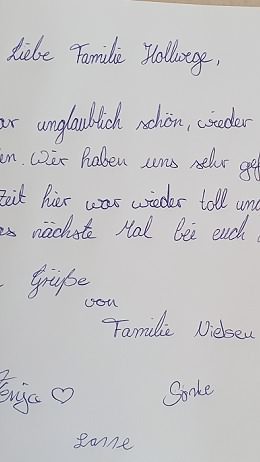 Liebe Familie Hollwege,
ar unglaublich schön, wieder
en. Wir haben uns sehr gef
Zeit hier war wieder toll und
as nächste Mal bei euch
Grüße
von
Familie Nielsen
Svenja ♡ Sönke
Lasse